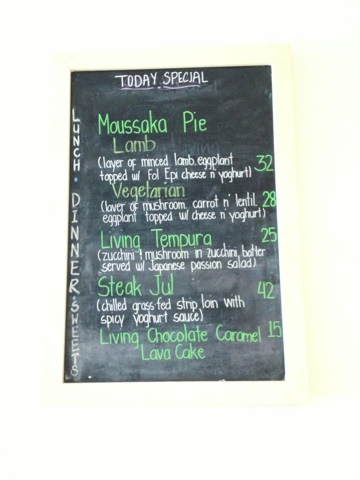 TODAY SPECIAL
LUNCH . DINNER & SWEETS
Moussaka Pie
Lamb
(layer of minced lamb, eggplant 32
topped w/ Fol Epi cheese n' yoghurt)
Vegetarian
(layer of mushroom, carrot n' lentil, 28
eggplant topped w/ cheese n' yoghurt)
Living Tempura 25
(zucchini & mushroom in zucchini batter
served w/ Japanese passion salad)
Steak Jul 42
(chilled grass fed strip loin with
spicy yoghurt sauce)
Living Chocolate Caramel 15
Lava Cake